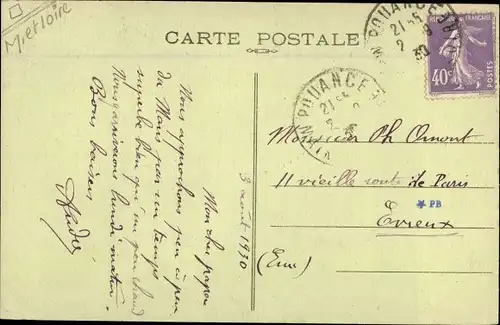 M et loire
CARTE POSTALE
POUANCÉ
21-5
2-8
30
POUANCÉ
21-5
2-8
40c
3 août 1930
Mon cher papa
Nous approchons peu à peu
du Mans par un temps
superbe bien qu'un peu chaud
Nous arriverons lundi matin.
Bons baisers
André
Monsieur Ph Omont
11 vieille route de Paris
PB
Evreux
(Eure)